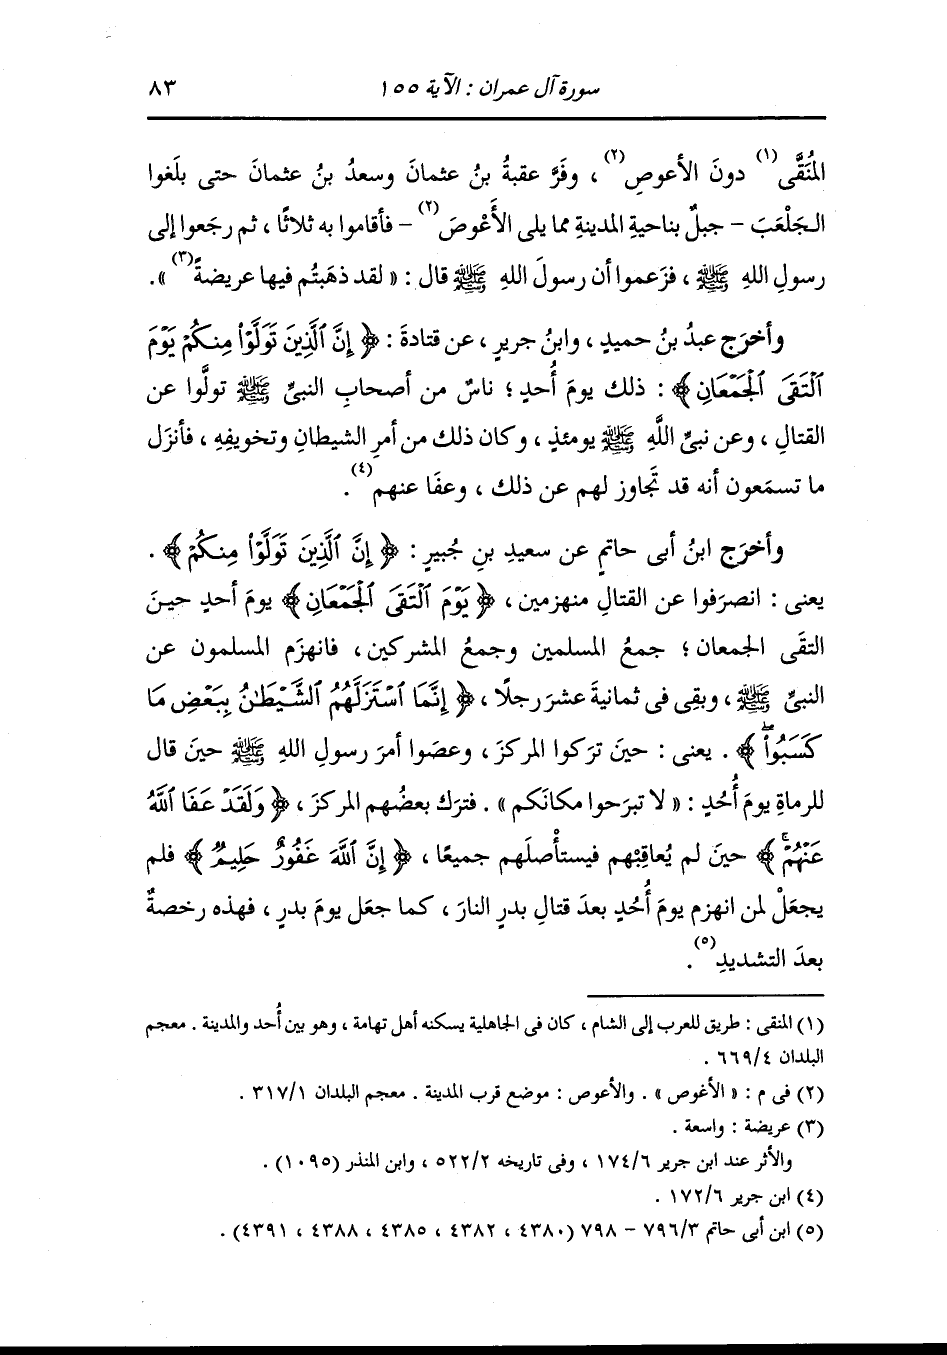 سورة آل عمران : الآية ١٥٥
٨٣
المُنَقَّى(١) دونَ الأعوصِ(٢) ، وفَرَّ عقبةُ بنُ عثمانَ وسعدُ بنُ عثمانَ حتى بلَغوا
الجَلْعَبَ – جبلٌ بناحيةِ المدينةِ مما يلى الأَعْوصَ(٢) – فأقاموا به ثلاثًا ، ثم رجَعوا إلى
رسولِ اللهِ ﷺ ، فزَعموا أن رسولَ اللهِ ﷺ قال : « لقد ذهَبتُم فيها عريضةً(٣) ».
وأخرَج عبدُ بنُ حميدٍ ، وابنُ جريرٍ ، عن قتادةَ : ﴿ إِنَّ ٱلَّذِينَ تَوَلَّوۡاْ مِنكُمۡ يَوۡمَ
ٱلۡتَقَى ٱلۡجَمۡعَانِ ﴾ : ذلك يومَ أُحدٍ ؛ ناسٌ من أصحابِ النبىِّ ﷺ تولَّوا عن
القتالِ ، وعن نبىِّ اللَّهِ ﷺ يومئذٍ ، وكان ذلك من أمرِ الشيطانِ وتخويفِهِ ، فأنزَل
ما تسمَعون أنه قد تَجاوز لهم عن ذلك ، وعفَا عنهم(٤) .
وأخرَج ابنُ أبى حاتمٍ عن سعيدِ بنِ جُبيرٍ : ﴿ إِنَّ ٱلَّذِينَ تَوَلَّوۡاْ مِنكُمۡ ﴾ .
يعنى : انصرَفوا عن القتالِ منهزمين ، ﴿ يَوۡمَ ٱلۡتَقَى ٱلۡجَمۡعَانِ ﴾ يومَ أحدٍ حينَ
التقَى الجمعان ؛ جمعُ المسلمين وجمعُ المشركين ، فانهزَم المسلمون عن
النبىِّ ﷺ ، وبقِى فى ثمانيةَ عشرَ رجلًا ، ﴿ إِنَّمَا ٱسۡتَزَلَّهُمُ ٱلشَّيۡطَٰنُ بِبَعۡضِ مَا
كَسَبُواْۖ ﴾ . يعنى : حينَ ترَكوا المركزَ ، وعصَوا أمرَ رسولِ اللهِ ﷺ حينَ قال
للرماةِ يومَ أُحُدٍ : « لا تبرَحوا مكانَكم » . فترَك بعضُهم المركزَ ، ﴿ وَلَقَدۡ عَفَا ٱللَّهُ
عَنۡهُمۡۚ ﴾ حينَ لم يُعاقِبْهم فيستأْصلَهم جميعًا ، ﴿ إِنَّ ٱللَّهَ غَفُورٌ حَلِيمٞ ﴾ فلم
يجعَلْ لمن انهزم يومَ أُحُدٍ بعدَ قتالِ بدرٍ النارَ ، كما جعَل يومَ بدرٍ ، فهذه رخصةٌ
بعدَ التشديدِ(٥) .
(١) المنقى : طريق للعرب إلى الشام ، كان فى الجاهلية يسكنه أهل تهامة ، وهو بين أُحد والمدينة . معجم
البلدان ٦٦٩/٤ .
(٢) فى م : « الأغوص » . والأعوص : موضع قرب المدينة . معجم البلدان ٣١٧/١ .
(٣) عريضة : واسعة .
والأثر عند ابن جرير ١٧٤/٦ ، وفى تاريخه ٥٢٢/٢ ، وابن المنذر (١٠٩٥) .
(٤) ابن جرير ١٧٢/٦ .
(٥) ابن أبى حاتم ٧٩٦/٣ – ٧٩٨ (٤٣٨٠ ، ٤٣٨٢ ، ٤٣٨٥ ، ٤٣٨٨ ، ٤٣٩١) .